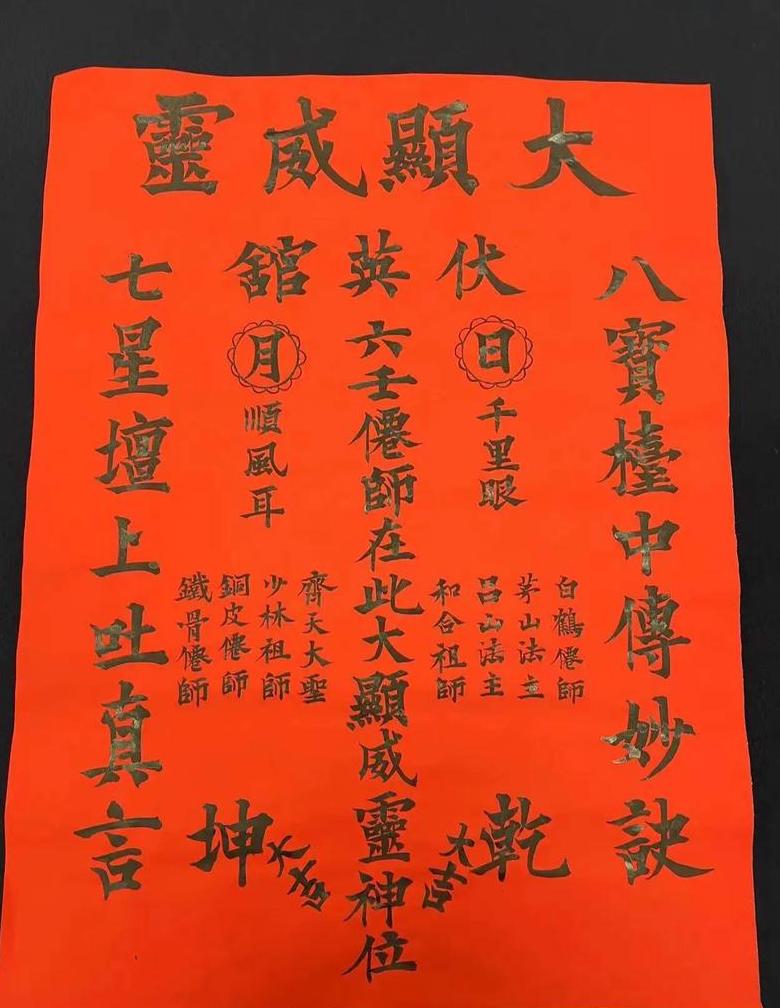 大顯威靈
伏英舘
八寶檯中傳妙訣
日
千里眼
白鶴僊師
茅山法主
呂山法主
和合祖師
乾
大吉
六壬僊師在此大顯威靈神位
月
順風耳
齊天大聖
少林祖師
銅皮僊師
鐵骨僊師
坤
大吉
七星壇上吐真言